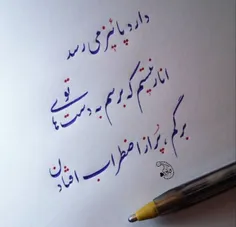 دارد پائیز می رسد
انار نیستم که برسم به دست های توی
برگم ، پُر از اضطراب افتادن